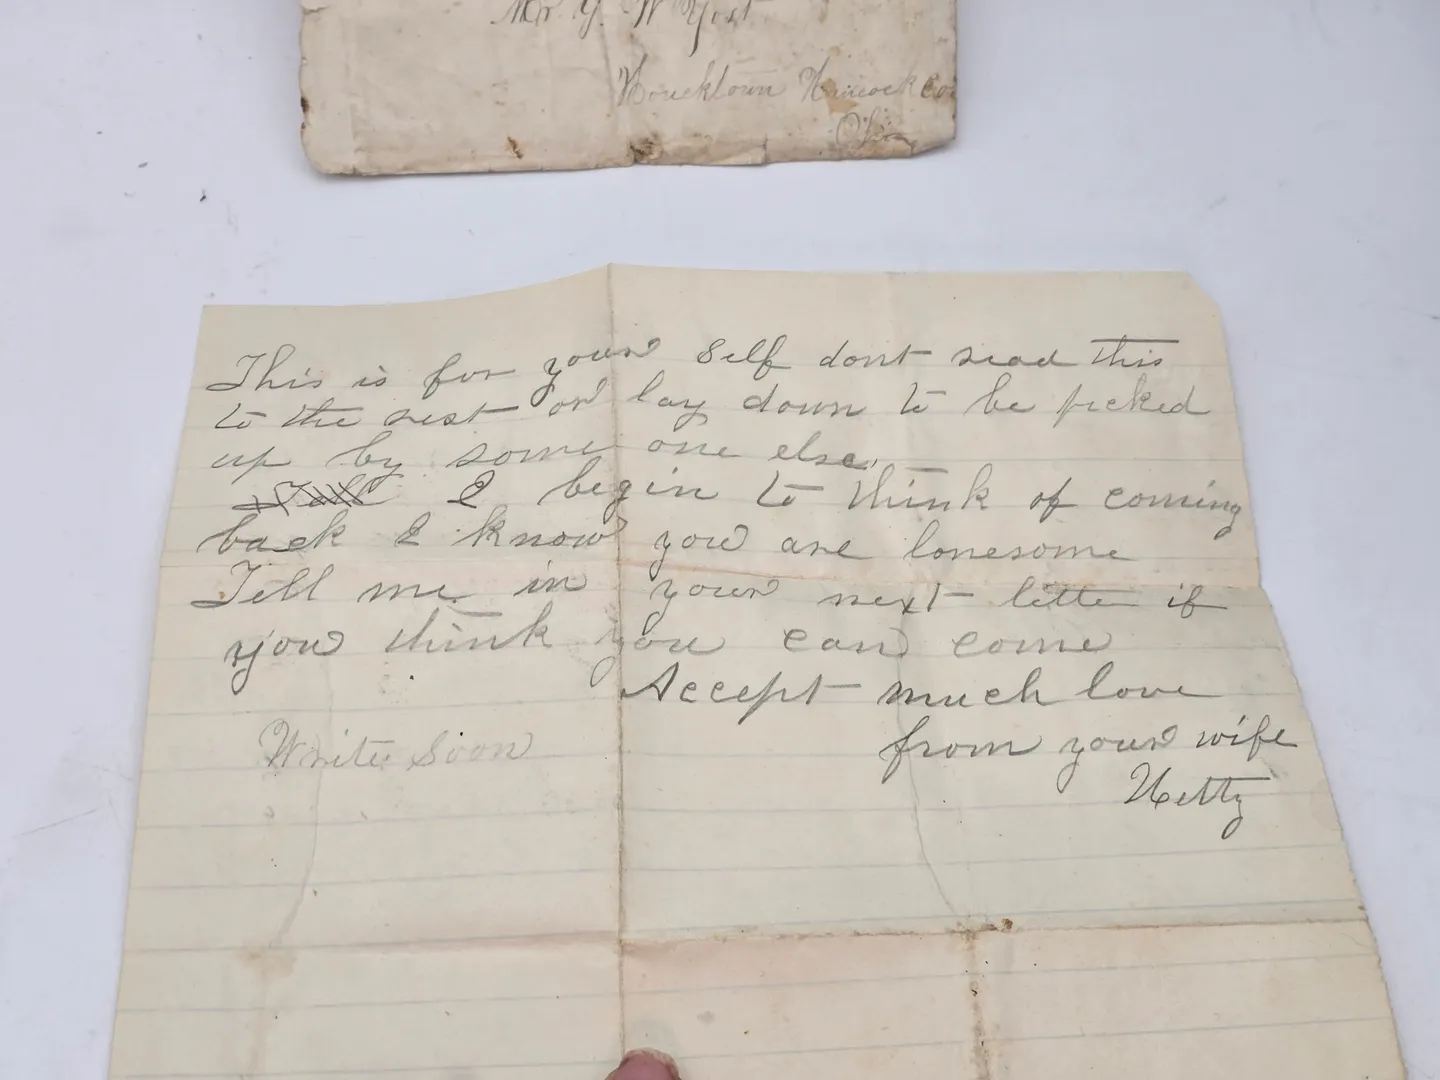 Mr. Y. W. Yost.
Houcktown Hancock Co.
Ohio
This is for your self dont read this
to the rest or lay down to be picked
up by some one else.
I begin to think of coming
back I know you are lonesome
Tell me in your next letter if
you think you can come
Accept much love
Write Soon from your wife
Hetty